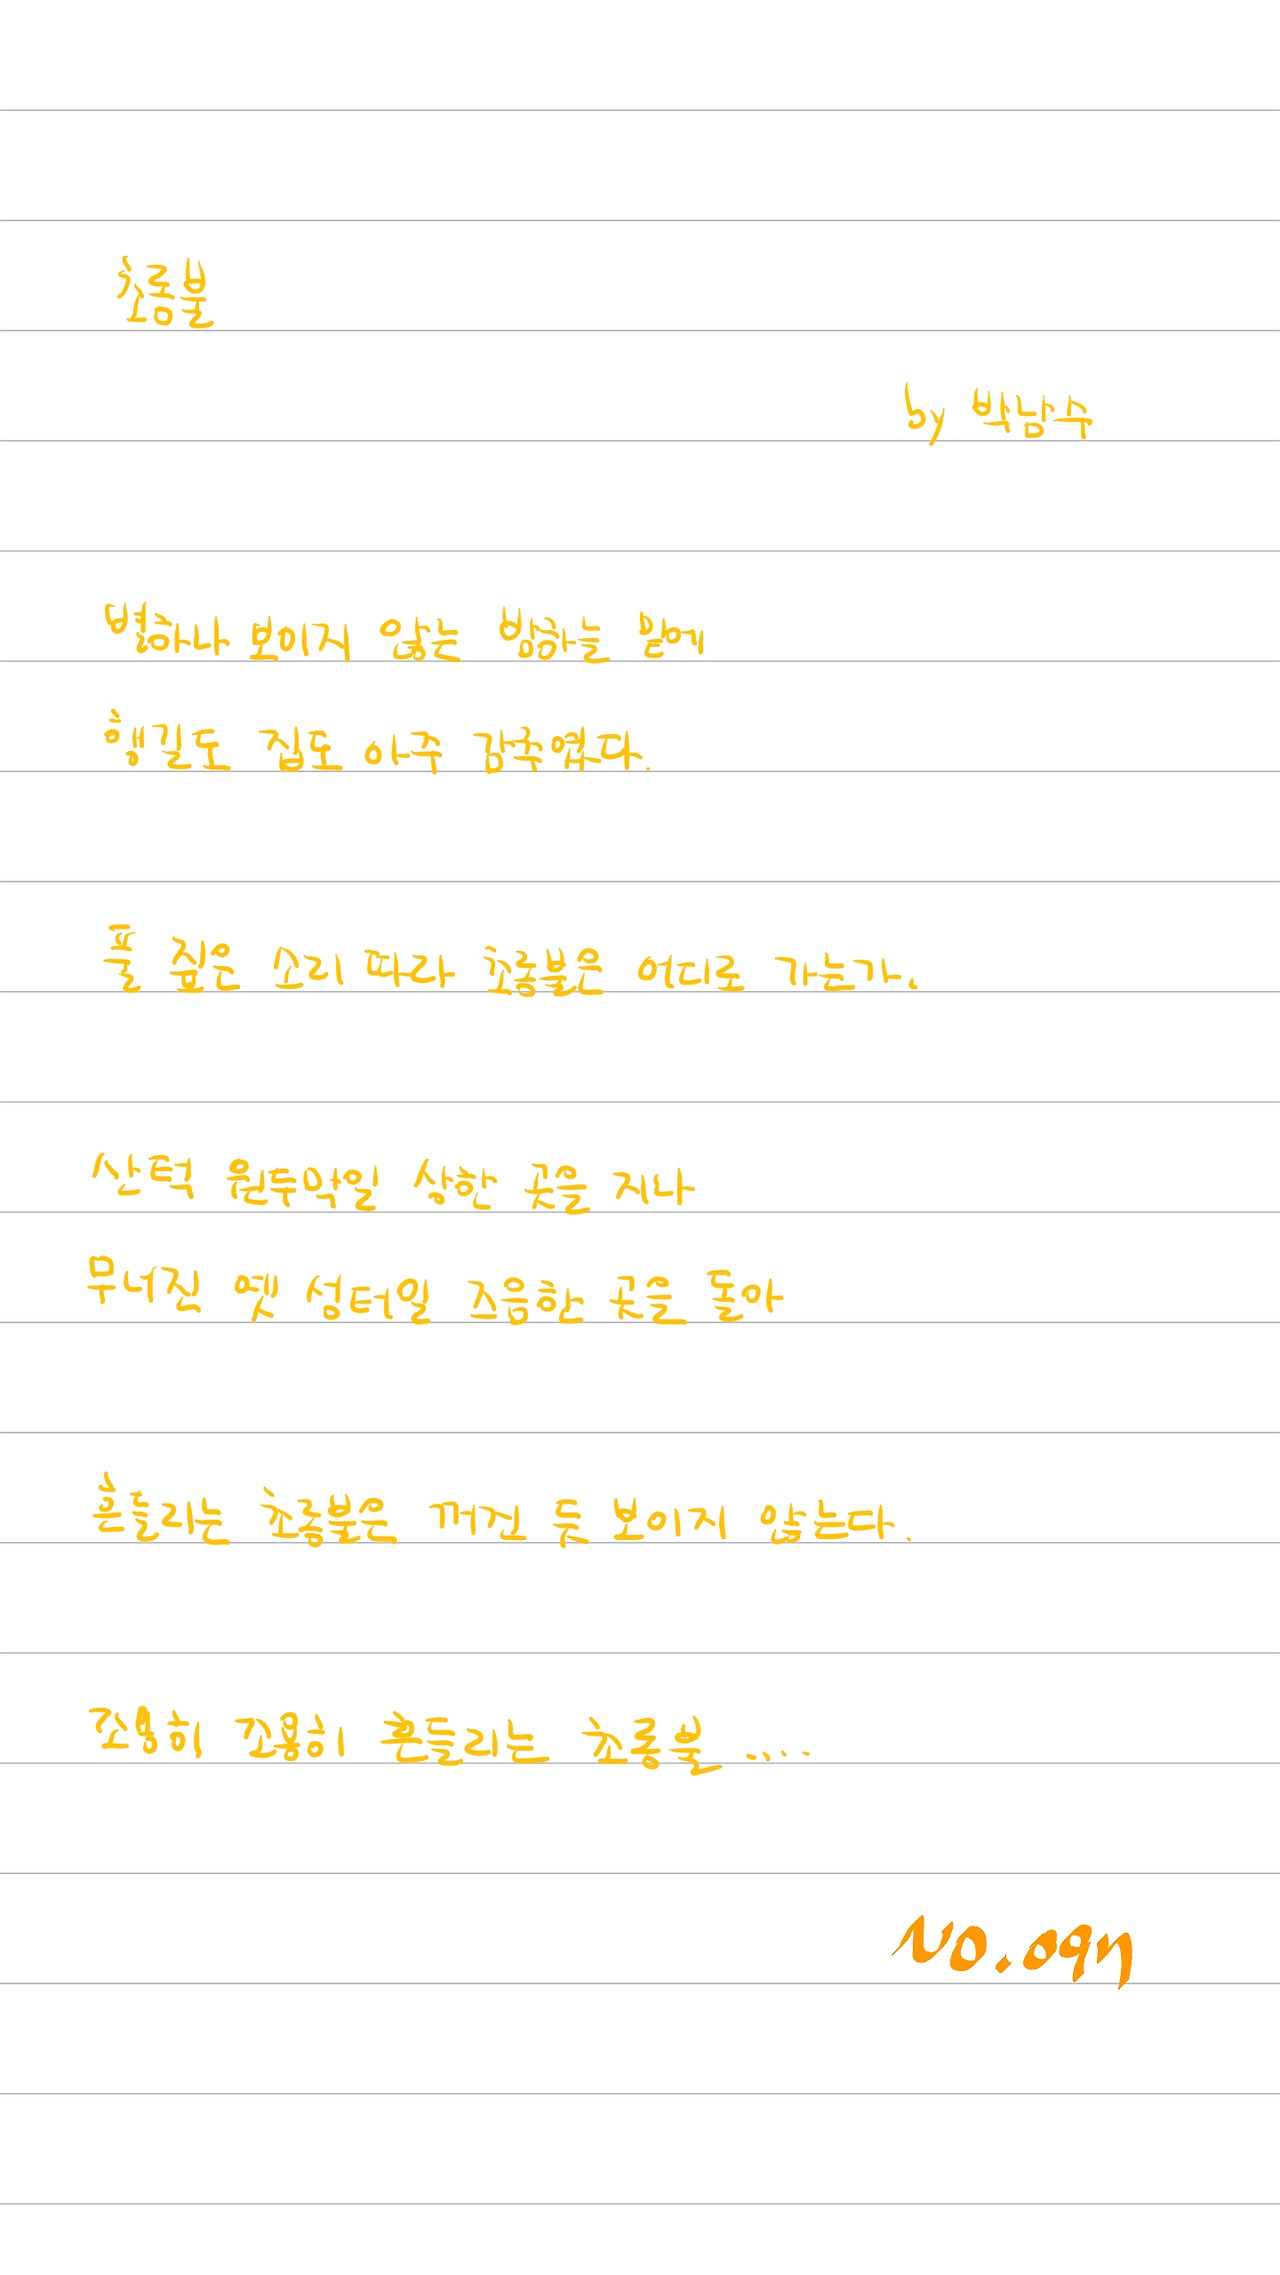 초롱불
by 박남수
별하나 보이지 않는 밤하늘 밑에
행길도 집도 아주 감추였다.
풀 짚은 소리 따라 초롱불은 어디로 가는가.
산턱 원두막일 상한 곳을 지나
무너진 옛 성터일 즈음한 곳을 돌아
흔들리는 초롱불은 꺼진 듯 보이지 않는다.
조용히 조용히 흔들리는 초롱불 ....
NO.097